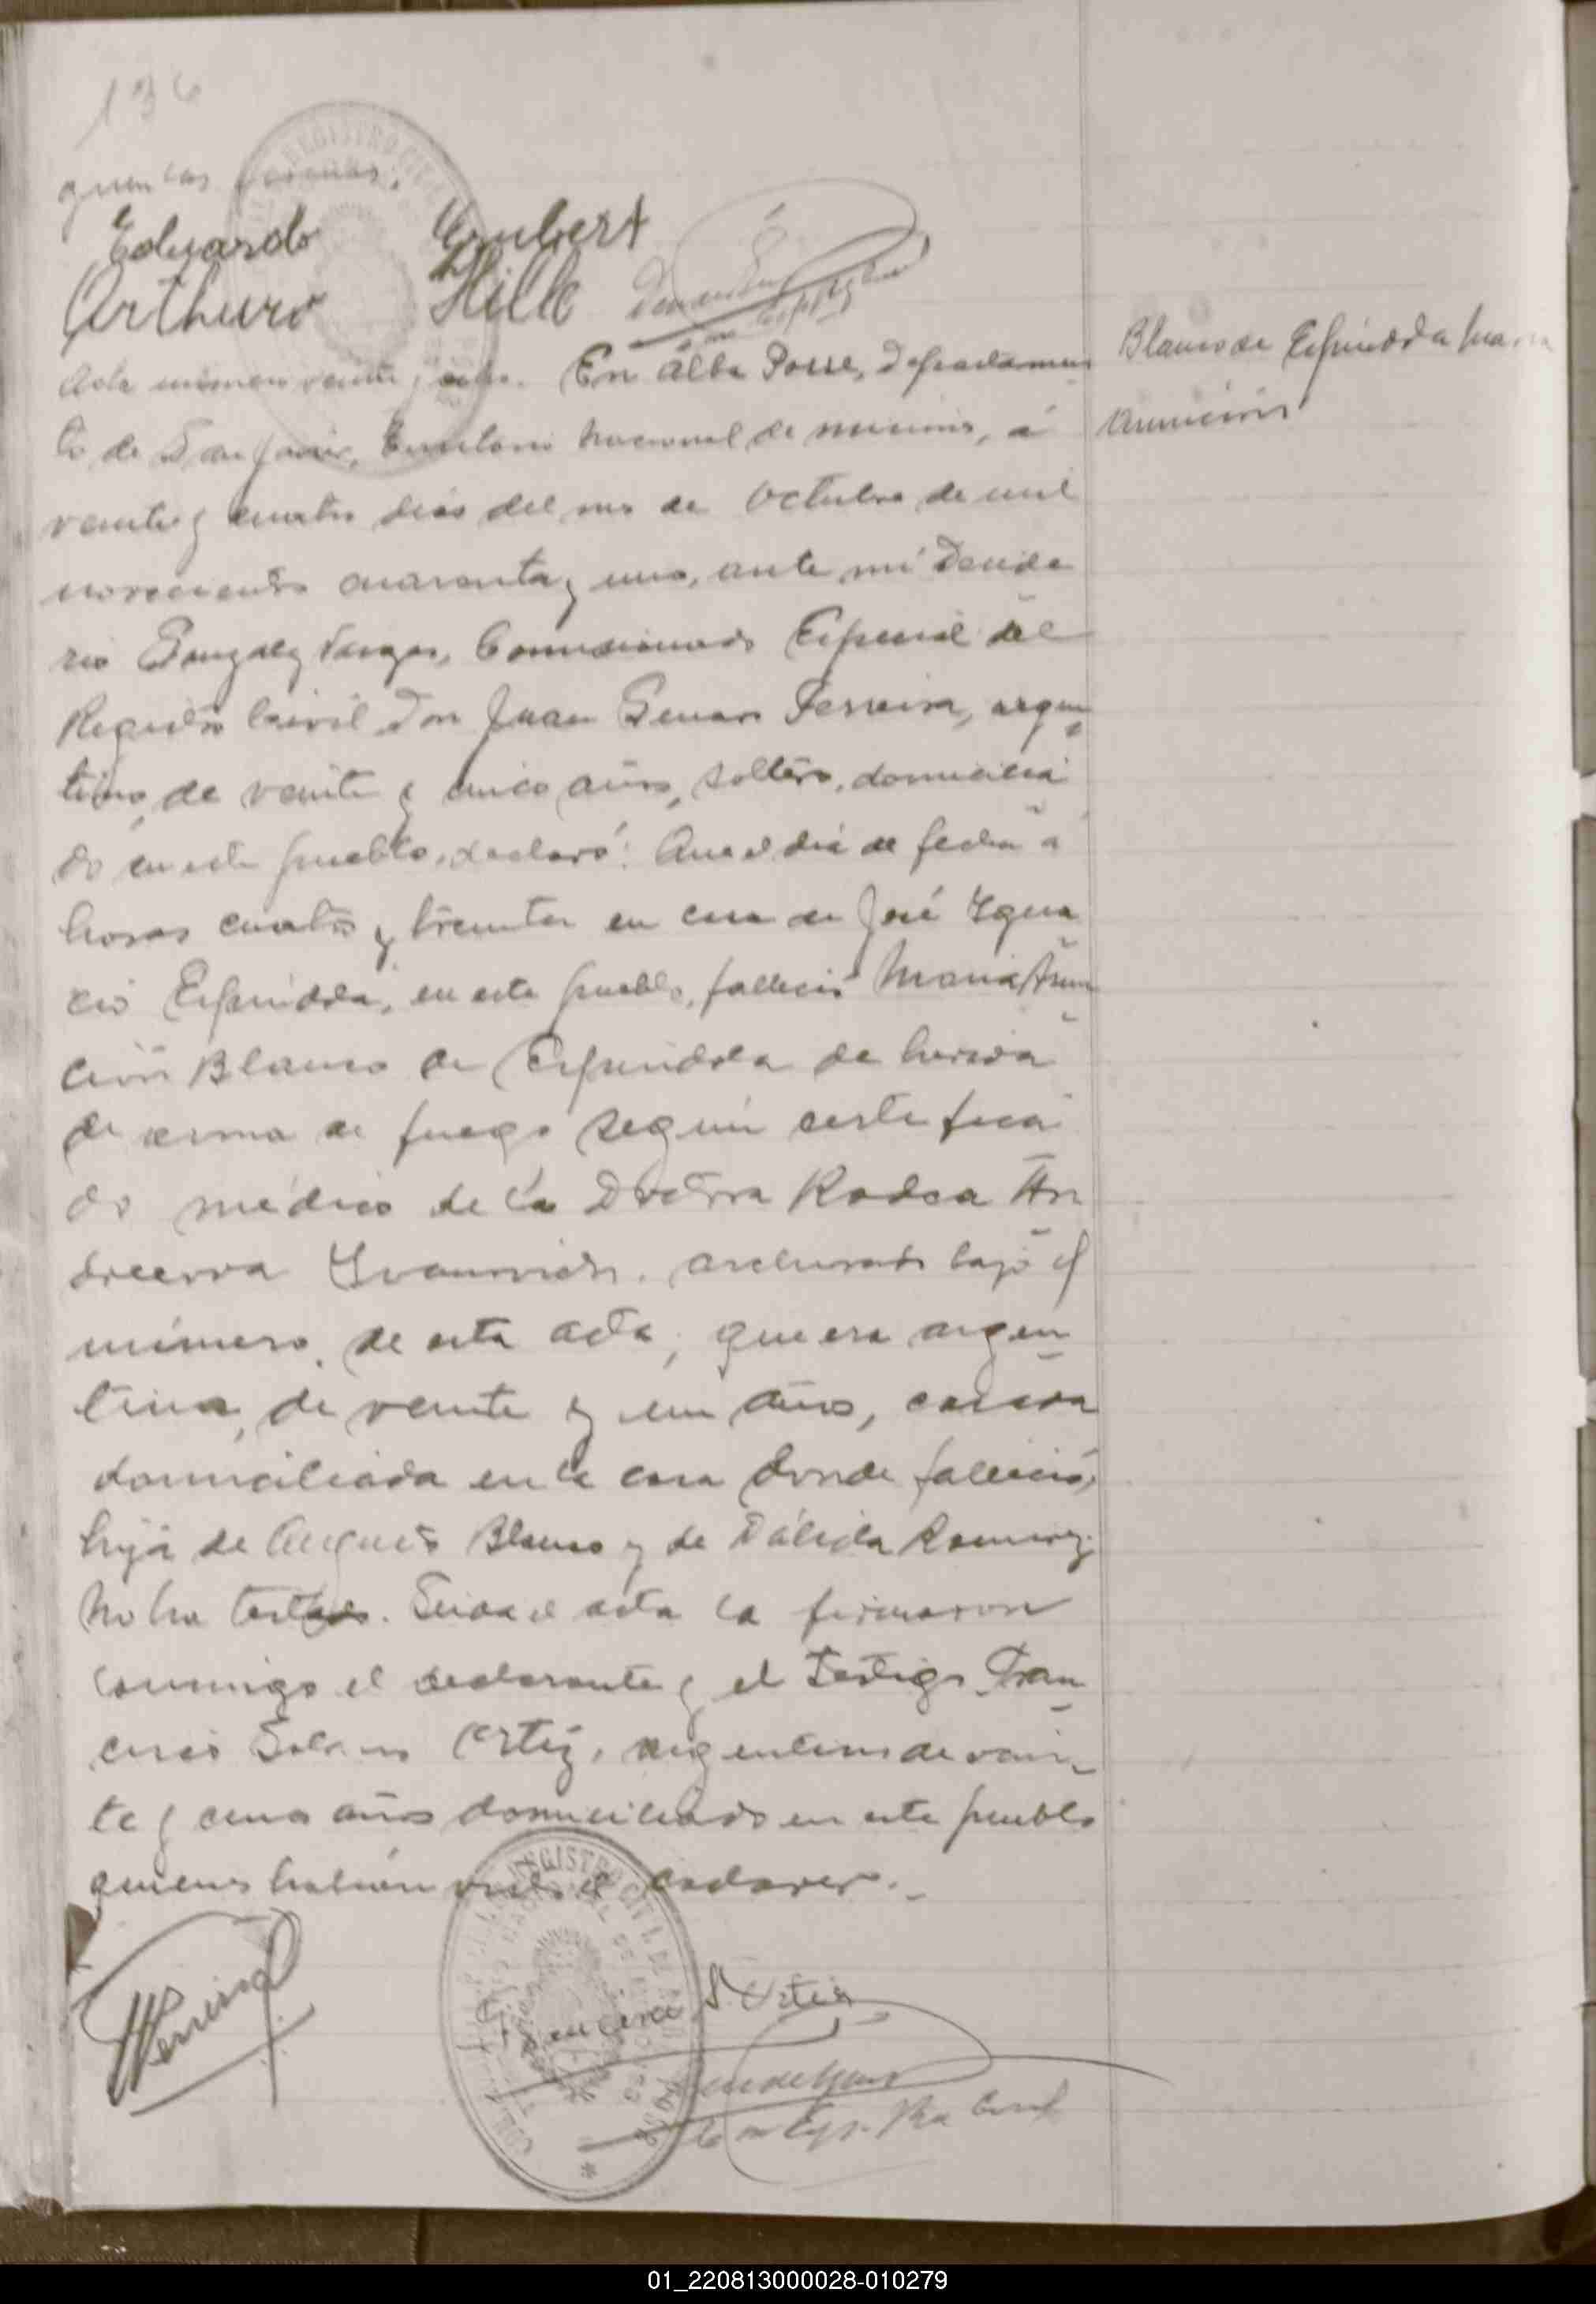 136
Eduardo Grubert
Arthuro Hillo
Acta numero veinte y ocho. En Alba Posse, Departamen
to de San Javier, Territorio Nacional de Misiones, á
veinte y cuatro dias del mes de Octubre de mil
novecientos cuarenta y uno, ante mi Deside
rio Gonzalez Vargas, Comisionado Especial del
Registro Civil Don Juan Genaro Ferreira, argen
tino, de veinte y cinco años, soltero, domicilia
do en este pueblo, declaró: Que el dia de fecha a
horas cuatro y treinta en casa de José Ygna
cio Espindola, en este pueblo, falleció Maria Asun
ción Blanco de Espindola de herida
de arma de fuego según certifica
do médico de la Doctora Radca An
dreewa Yvanovich. archivado bajo el
número de esta acta, que era argen
tina, de veinte y un años, casada
domiciliada en la casa donde falleció,
hija de Augusto Blanco y de Dálida Ramirez.
No ha testado. Leida el acta la firmaron
conmigo el declarante y el testigo Fran
cisco Solano Ortiz, argentino de vein
te y cinco años domiciliado en este pueblo
quienes habian visto el cadaver.
Blanco de Espindola Maria
Asunción
Ferreira
Francisco S. Ortiz
REGISTRO CIVIL
01_220813000028-010279